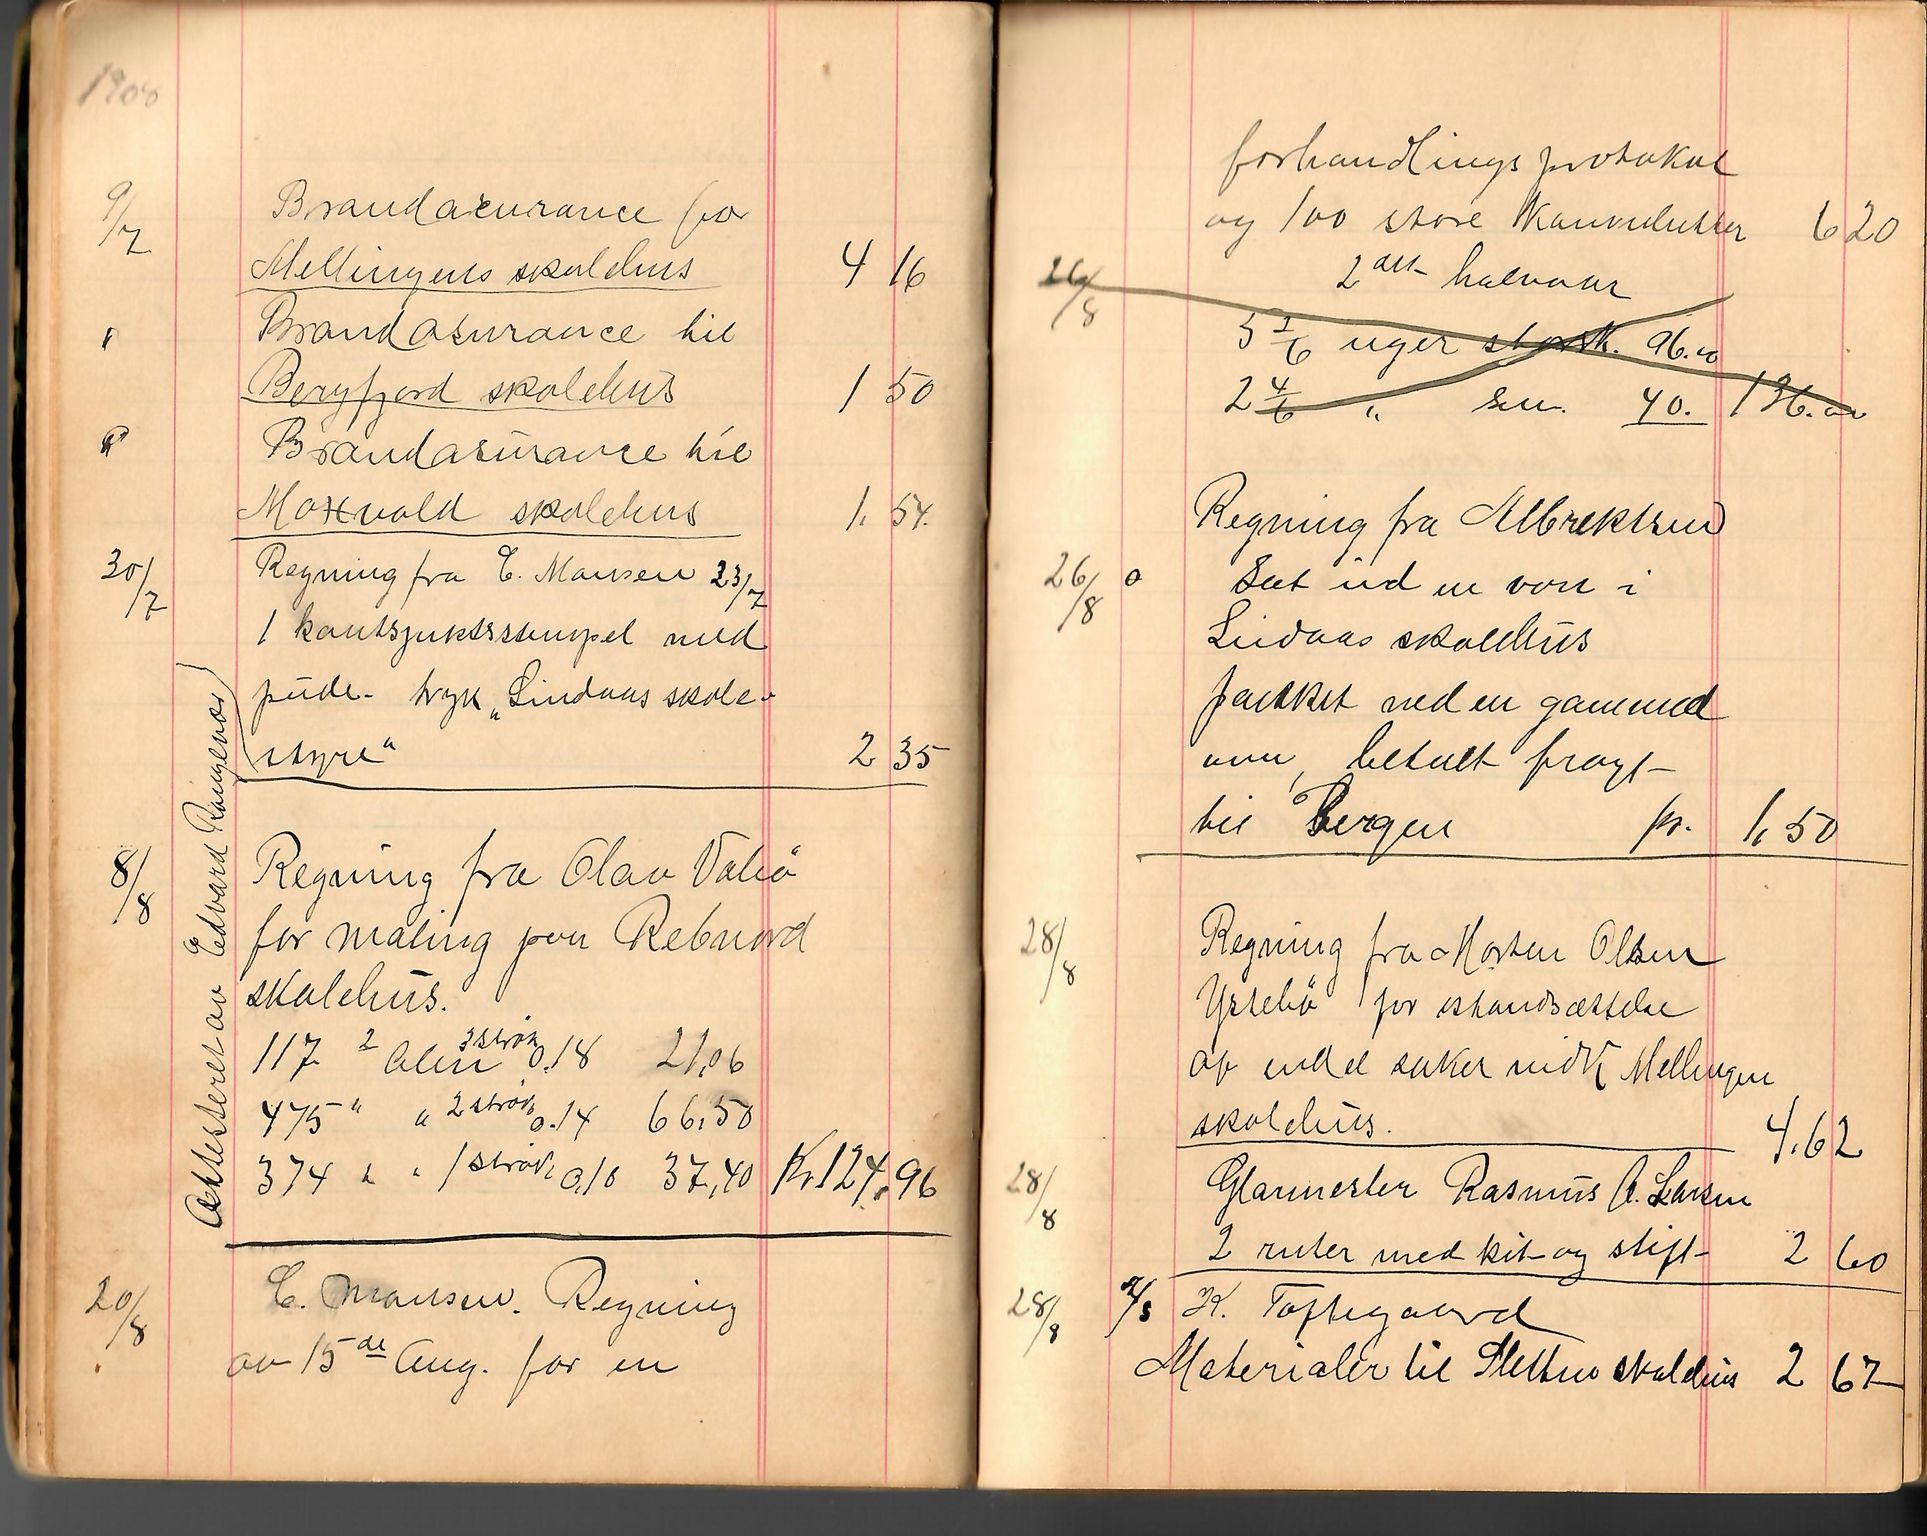 1908
9/7 Brandasurance for
Mellingens skolehus 4 16
" Brandasurance til
Bergfjord skolehus 1 50
" Brandasurance til
Mostvold skolehus 1, 54.
30/7 Regning fra E. Monsen 23/7
1 kautsjukstempel med
pude - tryk „Lindaas skole-
styre“ 2 35
Attesteret av Edvard Risnesnæs
8/8 Regning fra Olav Valbö
for maling paa Rebnord
skolehus.
117 2 Alen 3 strøk 0.18 21,06
475 " " 2 strøk 0.14 66,50
374 " " 1 strøk 0,10 37,40 Kr 124,96
20/8 E. Monsen. Regning
av 15de Aug. for en
forhandlingsprotokol
og 100 store Konvolutter 6 20
26/8 2det halvaar
5 2/6 uger storsk. 96.00
2 4/6 " sm. 40. 136.00
Regning fra Albrektsen
26/8 o Sat ind en ovn i
Lindaas skolehus
pakket ned en gammel
ovn, betalt fragt
til Bergen kr. 1,50
28/8 Regning fra Morten Olsen
Ystebö for istandsættelse
av endel saker vedk Mellingen
skolehus. 4.62
28/8 Glarmester Rasmus A. Larsen
2 ruter med kit og stift 2 60
28/8 K. Toftegaard
Materialer til Sletten skolehus 2 67